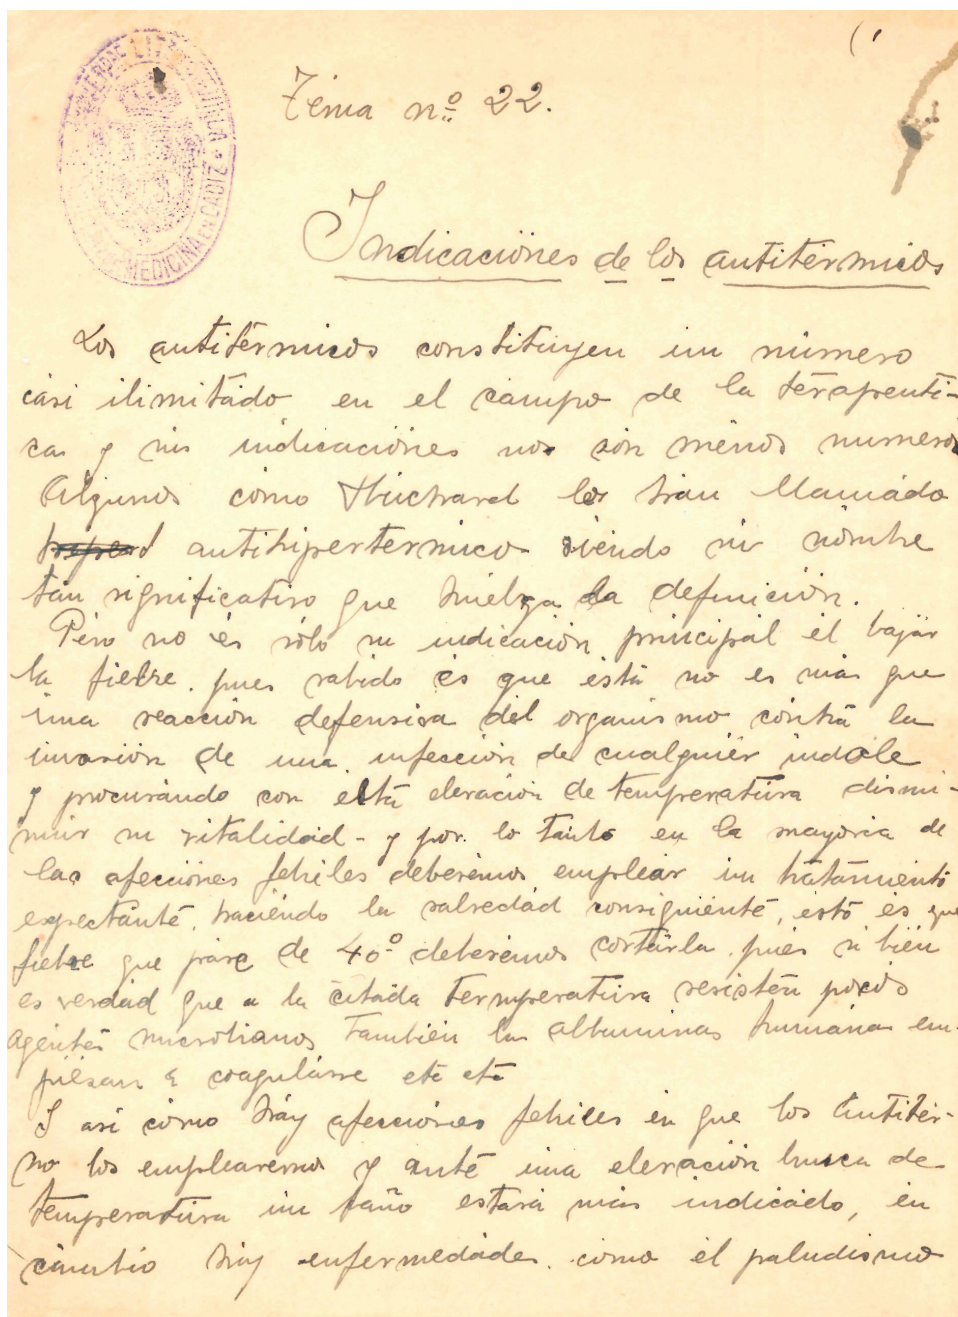 Tema nº 22.
MEDICINA EN CADIZ
Indicaciones de los antitérmicos
Los antitérmicos constituyen un número
casi ilimitado en el campo de la terapeuti-
ca y sus indicaciones nos són menos numeros
Algunos como Huchard los han llamado
antihipertermico siendo su nombre
tan significativo que huelga la definición.
Pero no es sólo su indicación principal el bajar
la fiebre pues sabido es que esta no es mas que
una reacción defensiva del organismo contra la
invasión de una infección de cualquier indole
y procurando con esta elevación de temperatura dismi-
nuir su vitalidad - y por lo tanto en la mayoria de
las afecciones febriles deberemos emplear un tratamiento
expectante haciendo la salvedad consiguiente, esto es que
fiebre que pase de 40º deberemos cortarla pues si bien
es verdad que a la citada temperatura resisten pocos
agentes microbianos tambien las albuminas humanas em-
piezan a coagularse etc etc
Y asi como hay afecciones febriles en que los antitér-
no los emplearemos y ante una elevación brusca de
temperatura un baño estará mas indicado, en
cambio hay enfermedades como el paludismo